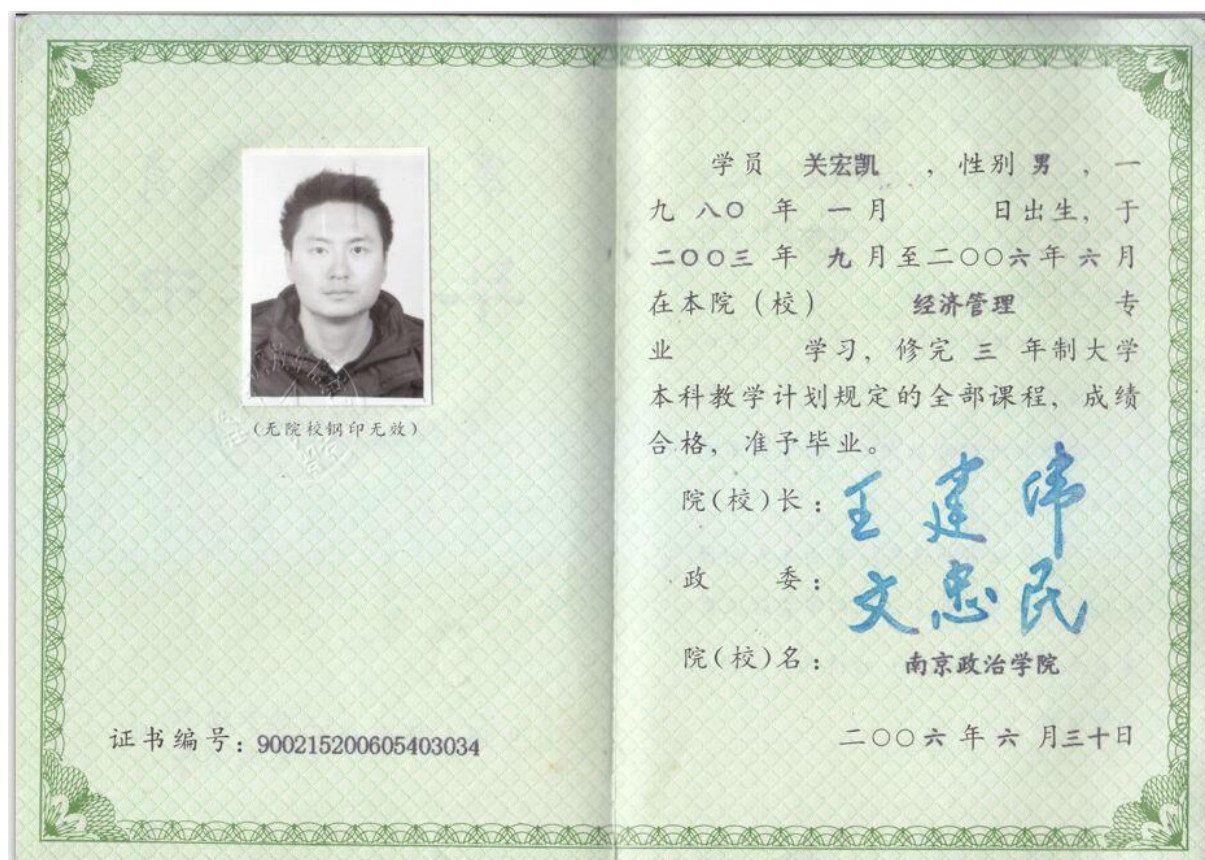 (无院校钢印无效)
证书编号：900215200605403034
学员 关宏凯 ，性别 男 ，一
九 八〇 年 一 月 日出生，于
二〇〇三 年 九 月至二〇〇六年 六 月
在本院（校） 经济管理 专
业 学习，修完 三 年制大学
本科教学计划规定的全部课程，成绩
合格，准予毕业。
院(校)长：王建伟
政 委：文忠民
院(校)名：南京政治学院
二〇〇六 年 六 月三十日